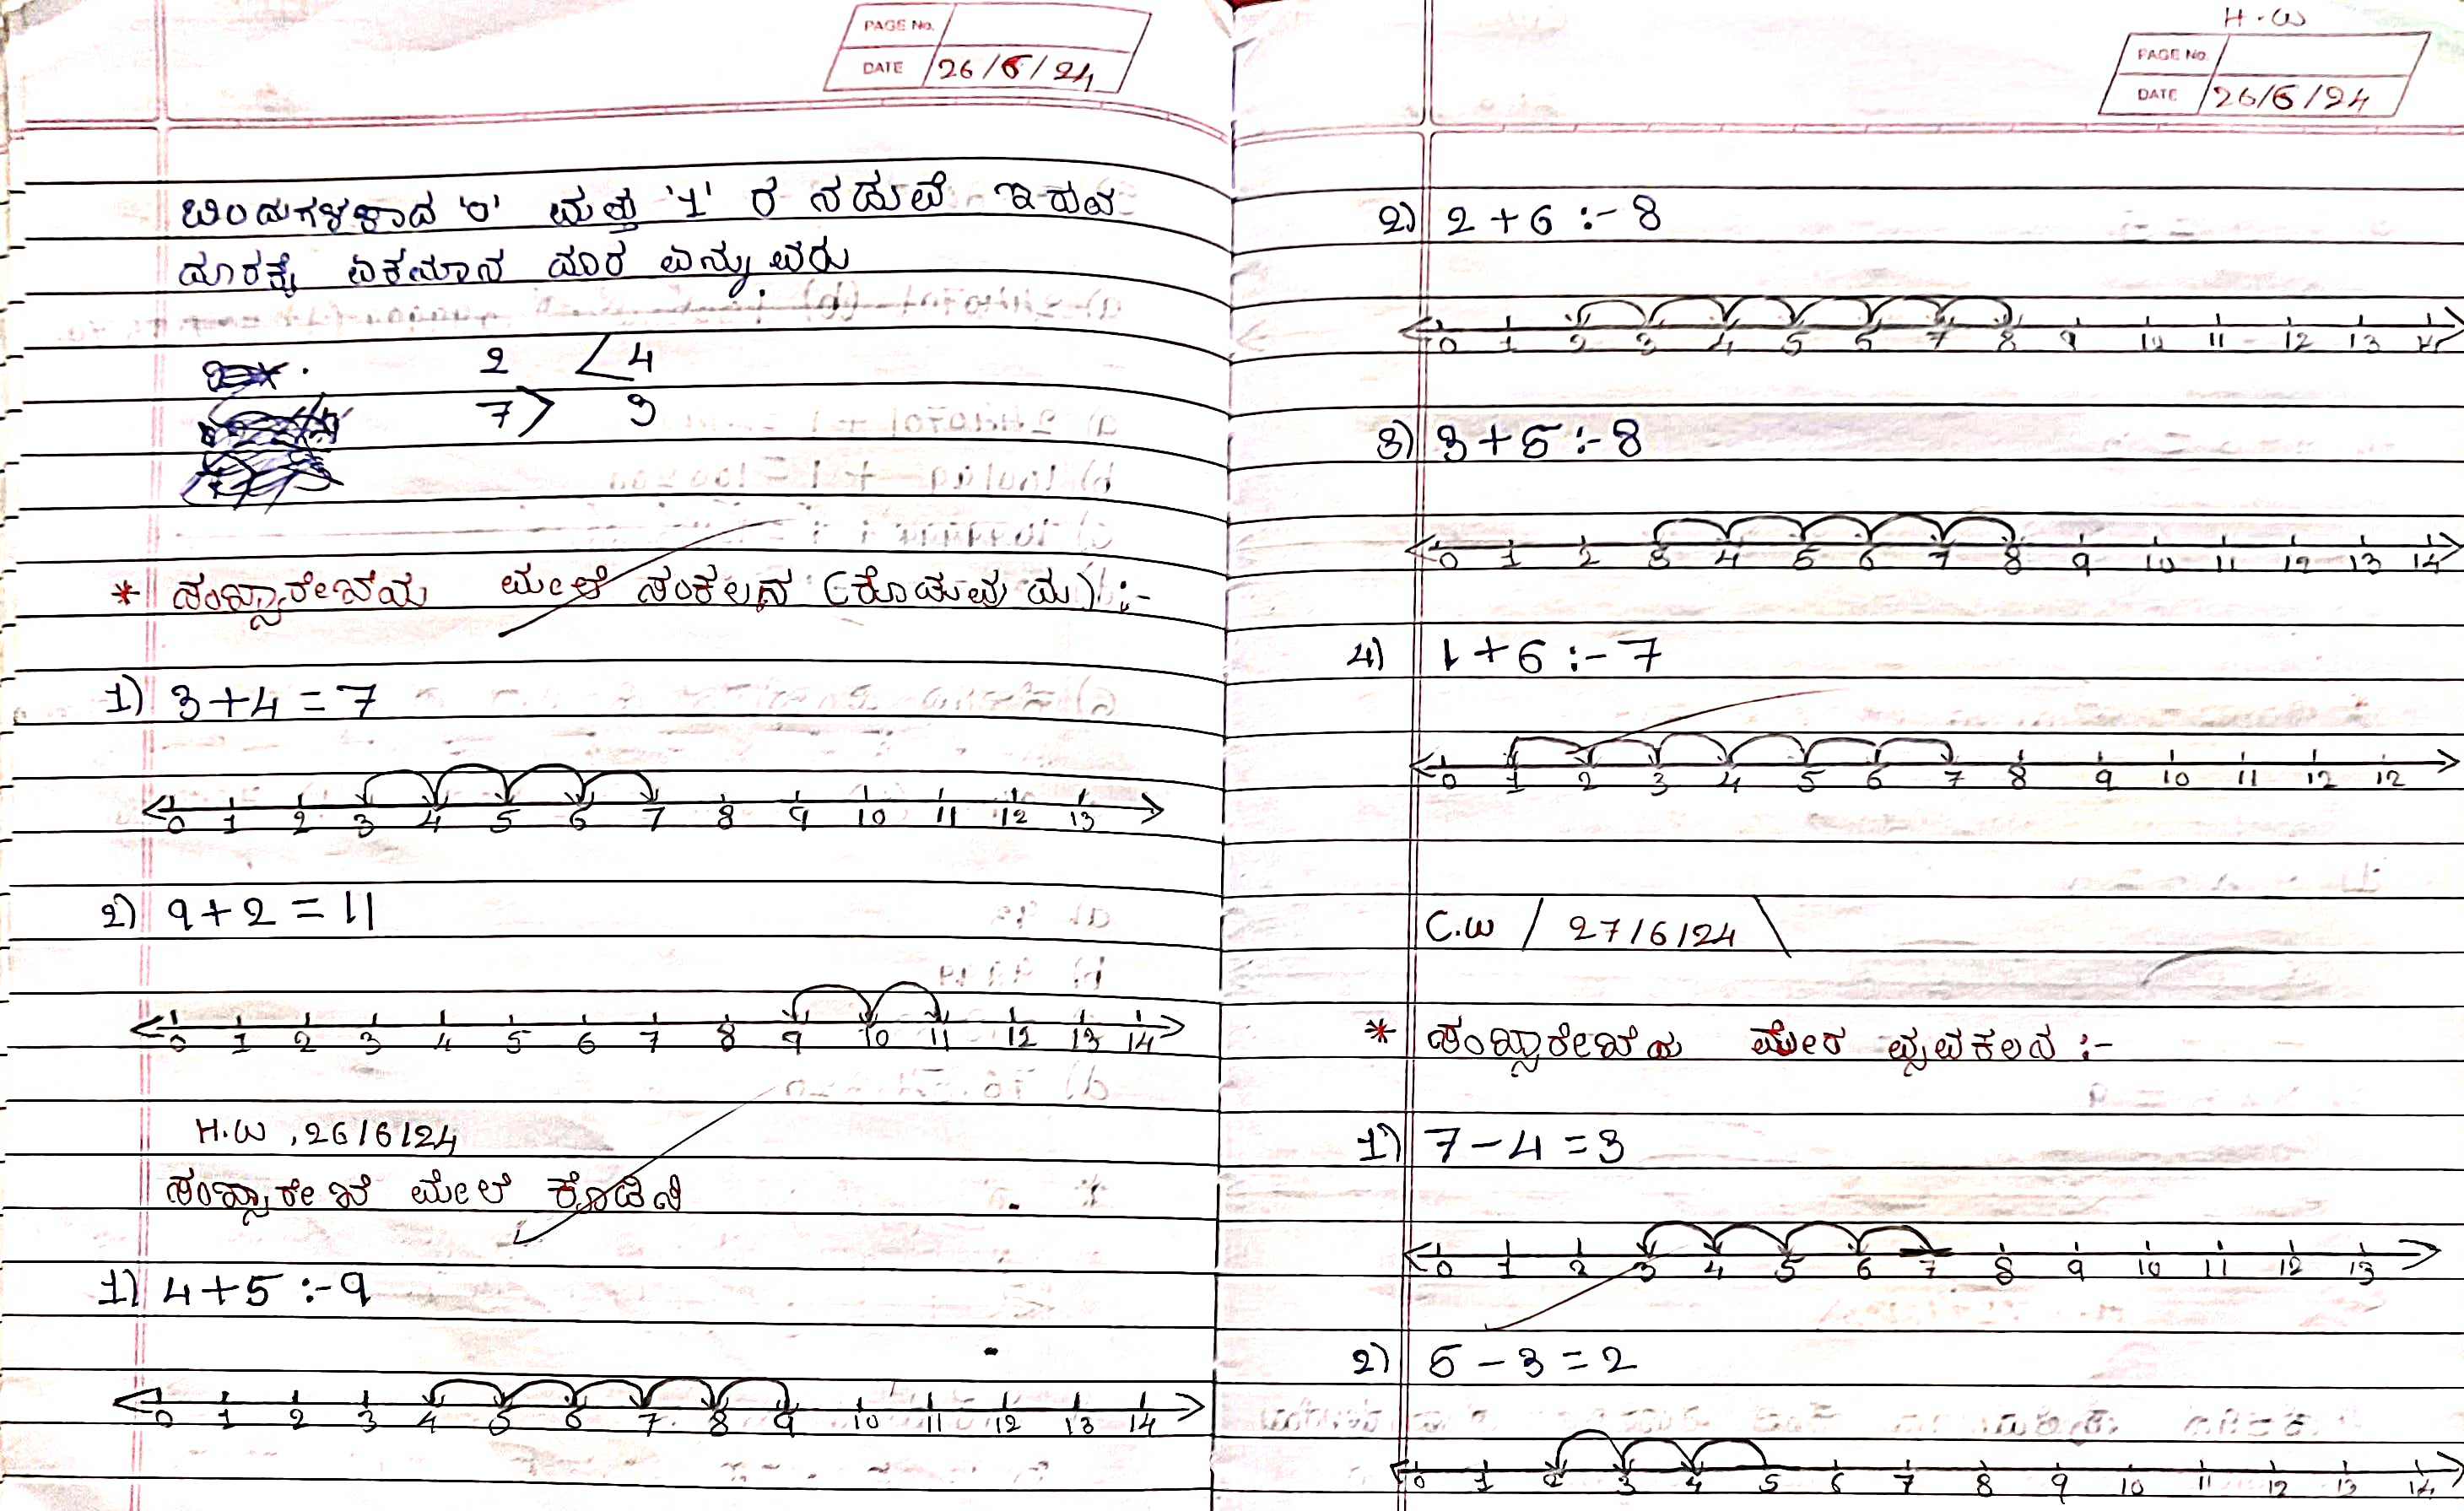 PAGE No.
DATE 26/6/24
ಬಿಂದುಗಳಾದ '0' ಮತ್ತು '1' ರ ನಡುವೆ ಇರುವ
ದೂರಕ್ಕೆ ಏಕಮಾನ ದೂರ ಎನ್ನುವರು.
2 < 4
7 > 3
* ಸಂಖ್ಯಾರೇಖೆಯ ಮೇಲೆ ಸಂಕಲನ (ಕೂಡುವುದು) :-
1) 3+4 = 7
0 1 2 3 4 5 6 7 8 9 10 11 12 13
2) 9+2 = 11
0 1 2 3 4 5 6 7 8 9 10 11 12 13 14
H.W, 26/6/24
ಸಂಖ್ಯಾರೇಖೆ ಮೇಲೆ ಕೂಡಿಸಿ
1) 4+5 :- 9
0 1 2 3 4 5 6 7 8 9 10 11 12 13 14
H.W
PAGE No.
DATE 26/6/24
2) 2+6 :- 8
0 1 2 3 4 5 6 7 8 9 10 11 12 13 14
3) 3+5 :- 8
0 1 2 3 4 5 6 7 8 9 10 11 12 13 14
4) 1+6 :- 7
0 1 2 3 4 5 6 7 8 9 10 11 12 12
C.W / 27/6/24 \
* ಸಂಖ್ಯಾರೇಖೆಯ ಮೇರ ವ್ಯವಕಲನ :-
1) 7-4 = 3
0 1 2 3 4 5 6 7 8 9 10 11 12 13
2) 5-3 = 2
0 1 2 3 4 5 6 7 8 9 10 11 12 13 14